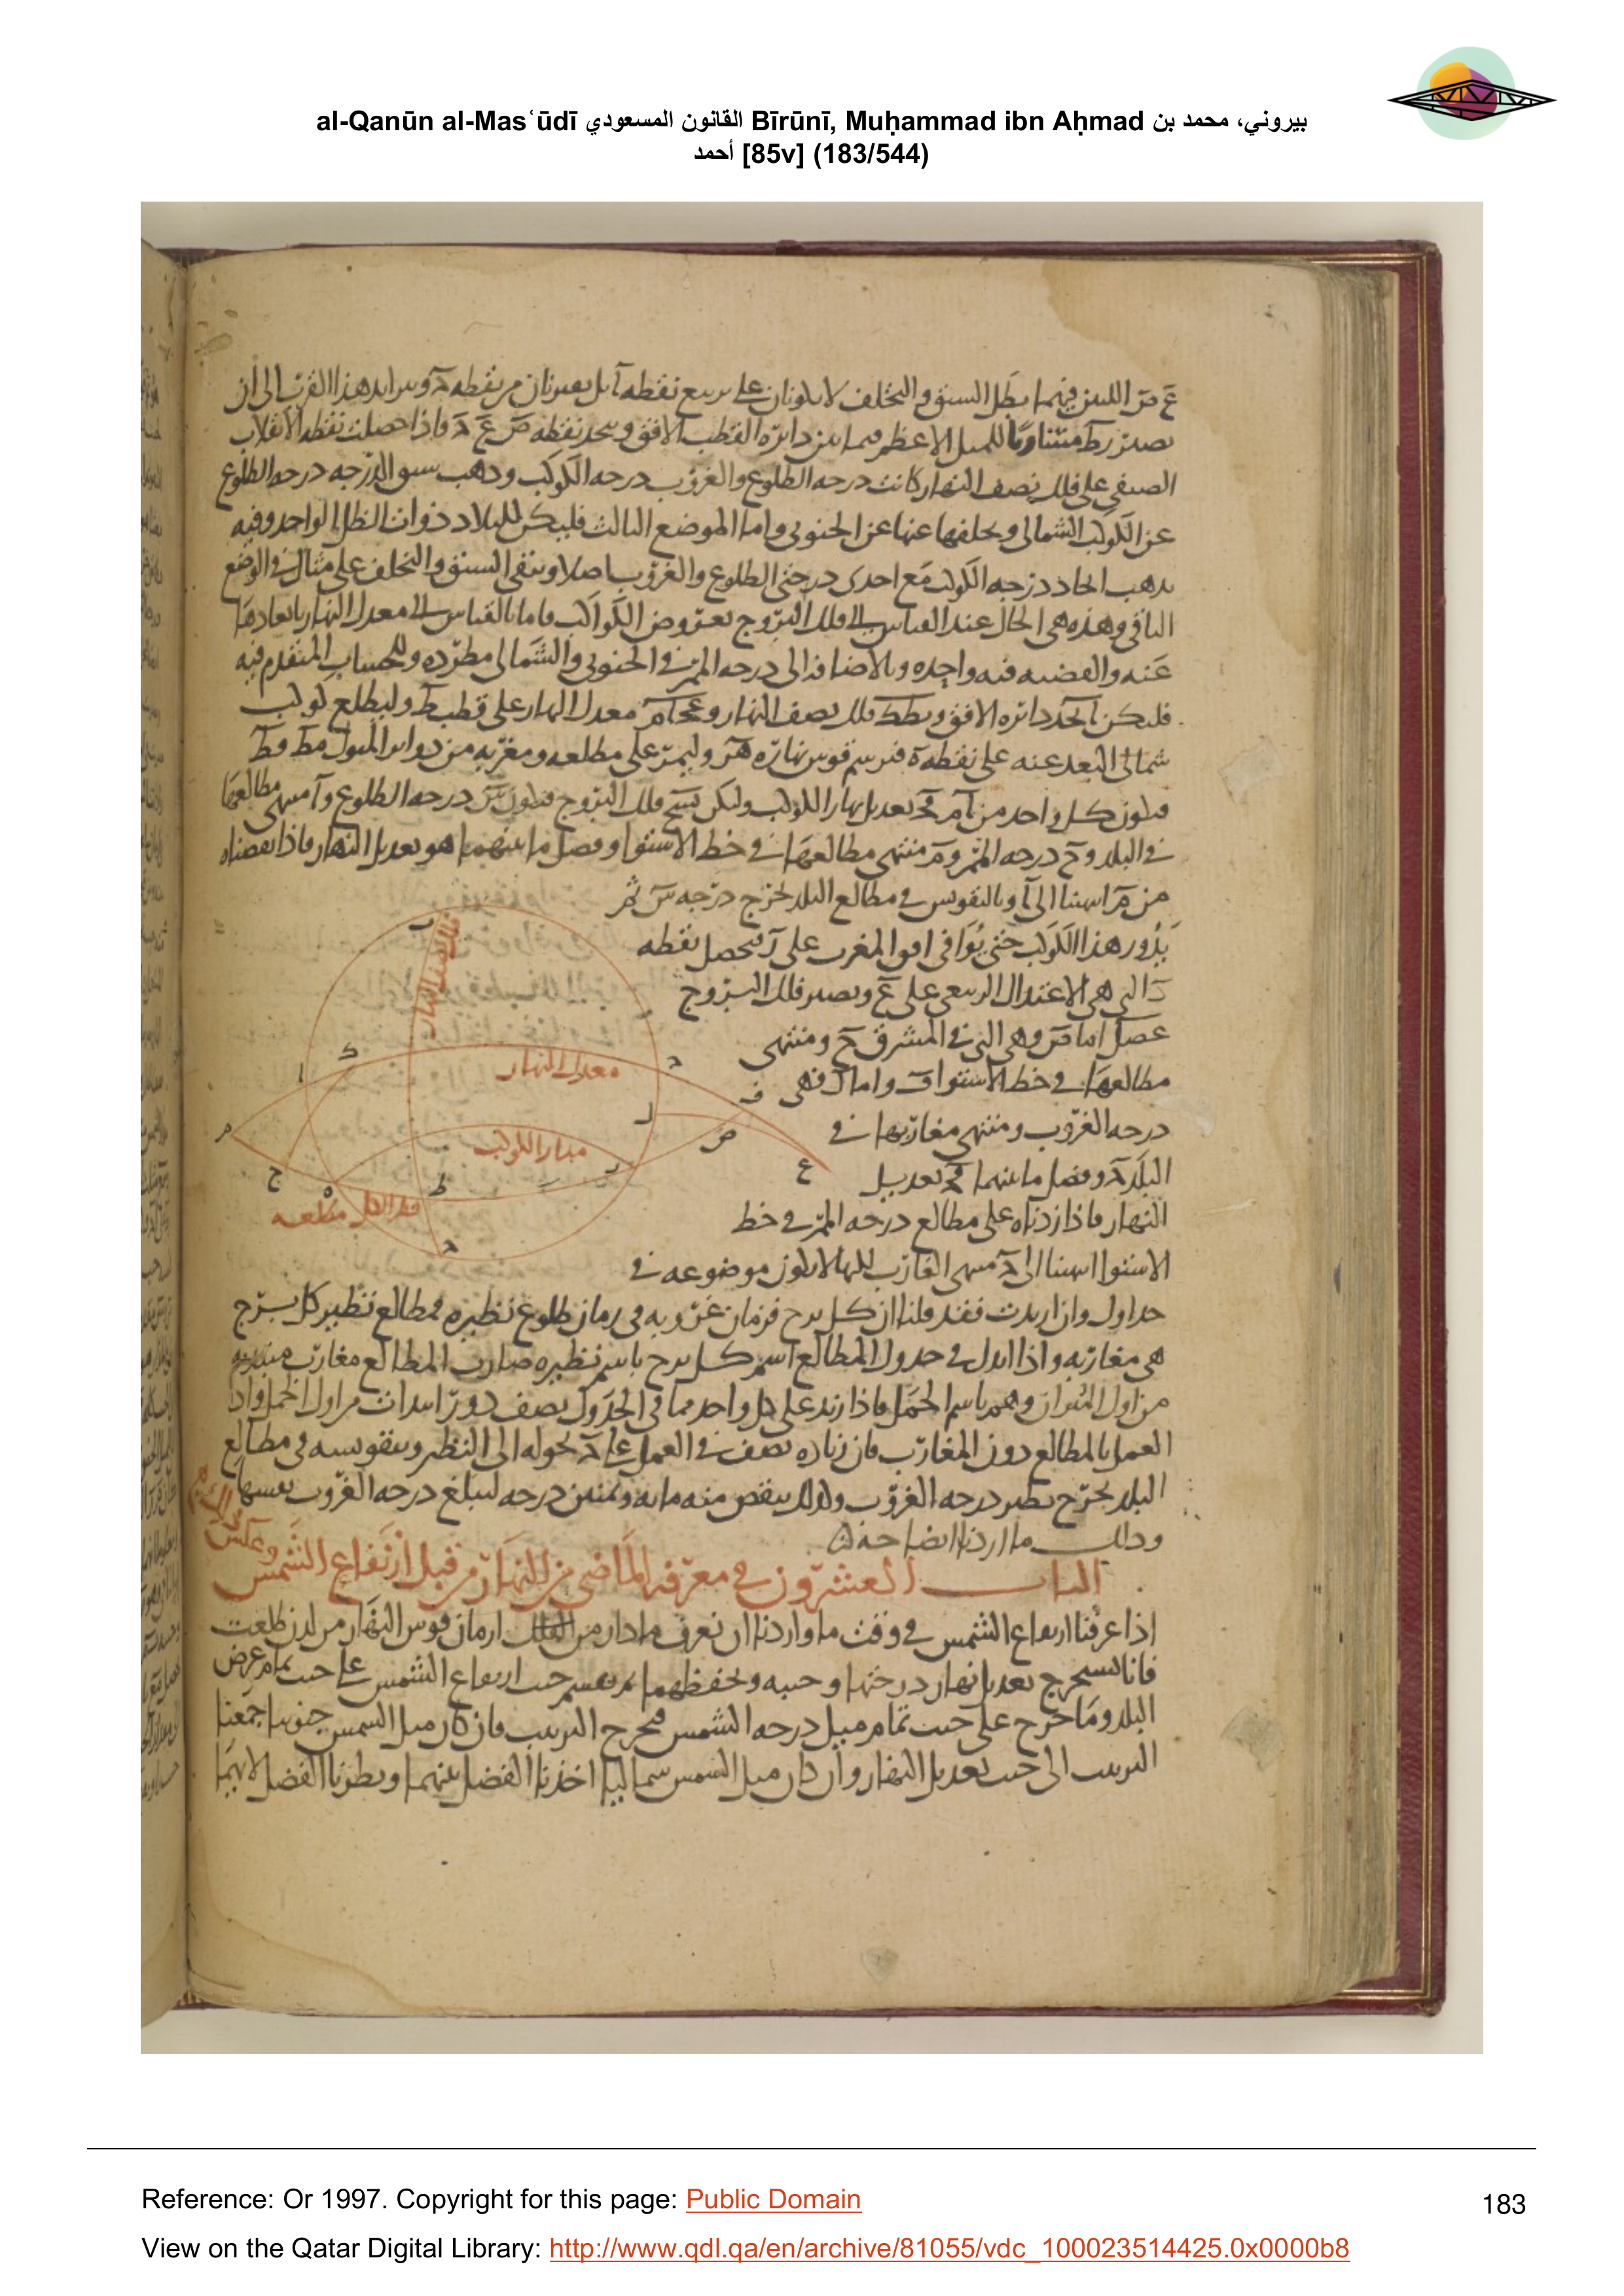 al-Qanūn al-Masʿūdī القانون المسعودي Bīrūnī, Muḥammad ibn Aḥmad بيروني، محمد بن
أحمد [85v] (183/544)
الصيفي على فلك نصف النهار كانت درجه الطلوع والغروب درجه الكوكب وذهب سبق الدرجه درجه الطلوع
عن الكوكب الشمالي وتخلفها عنها عن الجنوبي واما الموضع الثالث فليكن للبلاد ذوات الظل الواحد وفيه
يذهب اتحاد درجه الكوكب مع احدى درجتي الطلوع والغروب اصلا ويبقى السبق والتخلف على مثال في الوضع
الباقي وهذه هي الحال عند القياس الى فلك البروج بعروض الكواكب فاما بالقياس الى معدل النهار بابعادها
عنه والقضيه فيه واحده وبالاضافه الى درجه الممر في الجنوبي والشمالي مطرده وللحساب المتقدم فيه
فليكن دائره الافق فلك نصف النهار معدل النهار على قطب ط وليطلع كوكب
شمالي البعد عنه على نقطه ه فنرسم قوس نهاره وليمر على مطلعه ومغربه من دوائر الميول
فيكون كل واحد من تعديل نهار الكوكب وليكن فلك البروج فيكون درجه الطلوع مطالعها
في البلد و ح درجه الممر و م منتهى مطالعها في خط الاستوا وفضل ما بينهما هو تعديل النهار فاذا نقصناه
من م انتهينا الى ا وبالتقويس في مطالع البلد تخرج درجه س ثم
يدور هذا الكوكب حتى يوافي افق المغرب على ر فتحصل نقطه
التي هي الاعتدال الربيعي على ع ويصير فلك البروج
اما ص وهي التي في المشرق ح ومنتهى
مطالعها في خط الاستوا ف واما ل فهي
درجه الغروب ومنتهى مغاربها في
البلد وفضل ما بينهما تعديل
النهار فاذا زدناه على مطالع درجه الممر في خط
الاستوا انتهينا الى منتهى المغارب لكنها لا تكون موضوعه في
جداول وان اريدت فقد قلنا ان كل برج فزمان غروبه في زمان طلوع نظيره فمطالع نظير كل برج
هي مغاربه واذا ابدل في جدول المطالع اسم كل برج باسم نظيره صارت المطالع مغارب مبتديه
من اول الميزان وهو باسم الحمل فاذا زيد على كل واحد مما في الجدول نصف دور ابتدات من اول الحمل واذا
العمل بالمطالع دون المغارب فان زياده نصف في العمل على تحوله الى النظير وبتقويسه في مطالع
البلد تخرج نظير درجه الغروب ولذلك ينقص منه مايه وثمنين درجه ليبلغ درجه الغروب نفسها
وذلك ما اردنا ايضاحه
الباب العشرون في معرفه الماضي من النهار من قبل ارتفاع الشمس وعكس
اذا عرفنا ارتفاع الشمس في وقت ما واردنا ان نعرف ما دار من الفلك ازمان قوس النهار من لدن طلعت
فانا نستخرج تعديل نهار درجتها وجيبه ونحفظهما ثم نقسم جيب ارتفاع الشمس على جيب تمام عرض
البلد وما خرج على جيب تمام ميل درجه الشمس فيخرج الترتيب فان كان ميل الشمس جنوبيا جمعنا
الترتيب الى جيب تعديل النهار وان كان ميل الشمس شماليا اخذنا الفضل بينهما ونظرنا الفضل لايهما
فلك نصف النهار
معدل النهار
مدار الكوكب
مطلعه
Reference: Or 1997. Copyright for this page: Public Domain
183
View on the Qatar Digital Library: http://www.qdl.qa/en/archive/81055/vdc_100023514425.0x0000b8